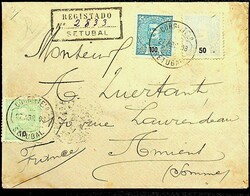 REGISTADO
Nº 2833
SETUBAL
100
50
SETUBAL
Monsieur
A Quertant
70 rue Laurendeau
Amiens
France
(Somme)
SETUBAL